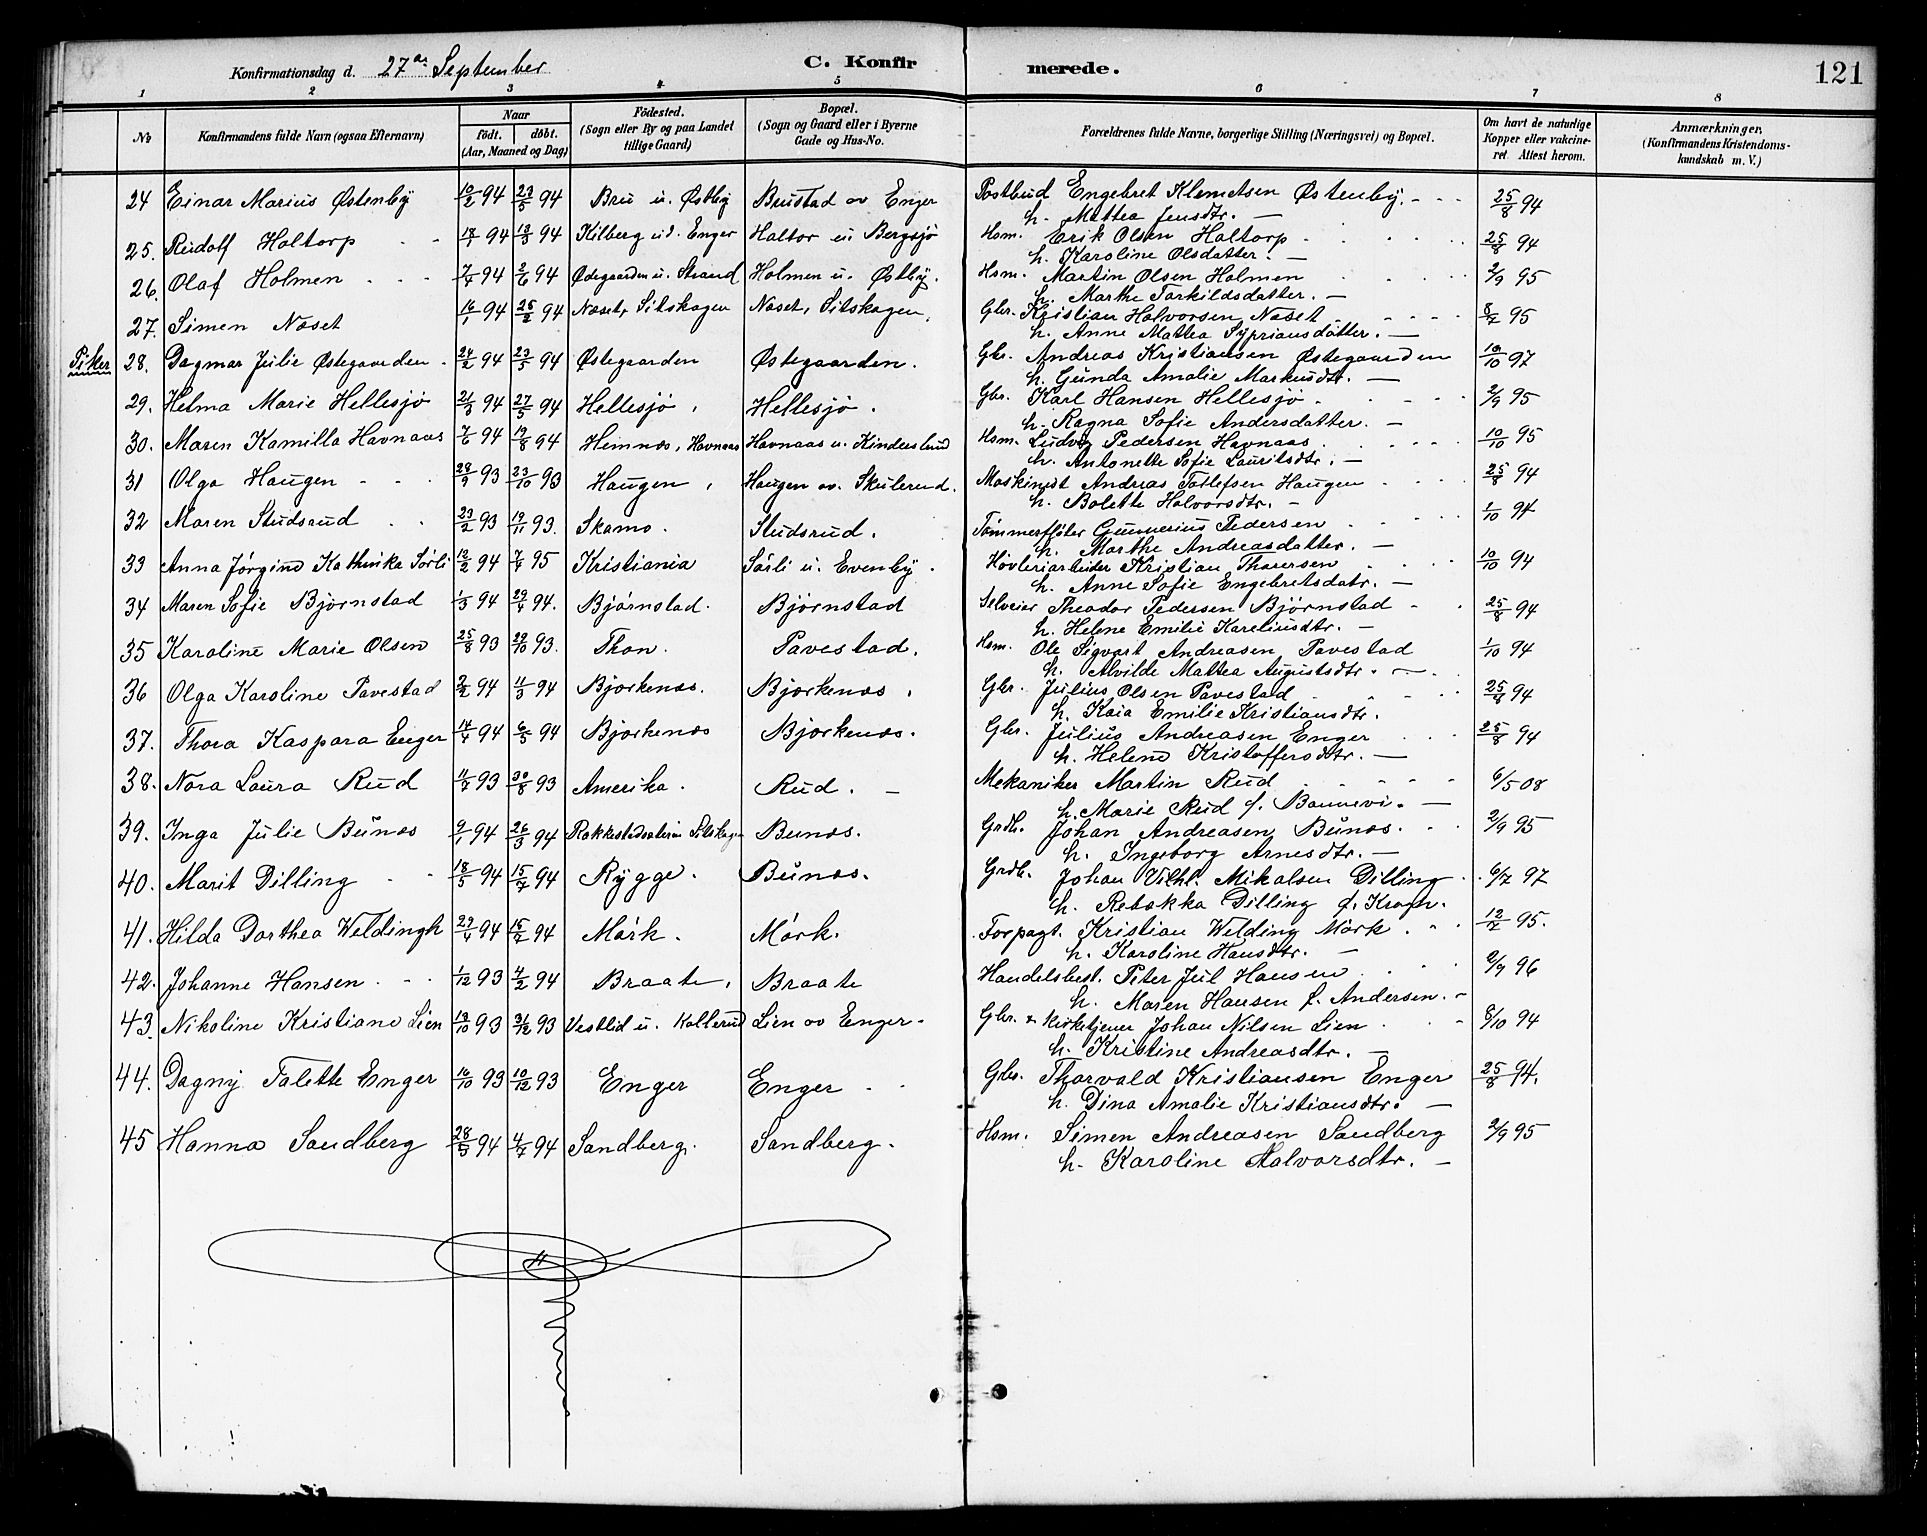 Konfirmationsdag d. 27de September C. Konfirmerede. 121
1 2 3 4 5 6 7 8
No Konfirmandens fulde Navn (ogsaa Efternavn) Naar födt. döbt. (Aar, Maaned og Dag) Födested. (Sogn eller By og paa Landet tillige Gaard) Bopæl. (Sogn og Gaard eller i Byerne Gade og Hus-No. Forældrenes fulde Navne, borgerlige Stilling (Næringsvei) og Bopæl. Om havt de naturlige Kopper eller vakcineret. Attest herom. Anmærkninger. (Konfirmandens Kristendomskundskab m. V.)
24 Einar Marius Østenby 10/2 94 23/5 94 Bru u. Østby Brustad av Enger Postbud Engebret Klemetsen Østenby. 25/8 94
h. Mathea Jensdtr. —
25. Rudolf Holtorp 18/1 94 13/5 94 Kilberg ud. Enger Holtor u Bergsjö Hsm. Erik Olsen Holtorp 25/8 94
h. Karoline Olsdatter. —
26. Olaf Holmen 7/4 94 2/6 94 Ødegaarden u. Strand Holmen u. Østby. Hsm. Martin Olsen Holmen 2/9 95
h. Marthe Torkildsdatter. —
27. Simen Næset 16/1 94 25/2 94 Næset, Sitskogen Næset, Sitskogen, Gbr. Kristian Halvorsen Næset 8/7 95
h. Anne Mathea Sypriansdatter. —
Piker 28. Dagmar Julie Østegaarden 24/2 94 23/5 94 Østegaarden Østegaarden. Gbr. Andreas Kristiansen Østegaarden 10/10 97
h. Gunda Amalie Markusdtr. —
29. Helma Marie Hellesjö 21/3 94 27/5 94 Hellesjö, Hellesjö. Gbr. Karl Hansen Hellesjö 2/9 95
h. Ragna Sofie Andersdatter. —
30. Maren Kamilla Havnaas 7/6 94 19/8 94 Hemnæs, Havnaas Havnaas u. Kinderslrud Hsm. Ludvig Pedersen Havnaas 10/10 95
h. Antonette Sofie Lauritsdtr. —
31 Olga Haugen 28/9 93 23/10 93 Haugen, Haugen av. Skulerud. Maskinist Andreas Tollefsen Haugen 25/8 94
h. Bolette Halvorsdtr. —
32 Maren Studsrud 23/2 93 19/11 93. Skamo. Studsrud. Tömmerfløter Gunnerius Pedersen 1/10 94
h. Marthe Andreasdatter. —
33 Anna Jörgine Kathinka Sörli 12/2 94 7/4 95 Kristiania Sörli u. Evenby. Høvleriarbeider Kristian Thoresen 10/10 94
h. Anne Sofie Engebretsdatr. —
34 Maren Sofie Björnstad 1/3 94 29/4 94. Björnstad. Björnstad Selveier Theodor Pedersen Bjørnstad 25/8 94
h. Helene Emilie Kareliusdtr. —
35 Karoline Marie Olsen 25/8 93 29/10 93. Thon. Pavestad. Hsm. Ole Sigvart Andreasen Pavestad 1/10 94
h. Alvilde Mathea Augustsdtr. —
36 Olga Karoline Pavestad 2/2 94 11/3 94 Bjorkenæs. Bjorkenæs, Gbr. Julius Olsen Pavestad 25/8 94
h. Kaia Emilie Kristiansdtr.
37. Thora Kaspara Enger 14/4 94 6/5 94 Bjorkenæs Bjorkenæs. Gbr. Julius Andreasen Enger 25/8 94
h. Helene Kristoffersdtr. —
38. Nora Laura Rud 11/7 93 30/8 93 Amerika. Rud. — Mekaniker Martin Rud 6/5 08
h. Marie Rud f. Bannevi. —
39. Inga Julie Bunæs 9/1 94 26/3 94 Rakkestadsæteren Sitskogen Bunæs. Grdb. Johan Andreasen Bunæs. 2/9 95
h. Ingeborg Arnesdtr. —
40. Marit Dilling 18/5 94 15/7 94 Rygge. Bunæs. Grdb. Johan Vilhl. Mikalsen Dilling 6/7 97
h. Rebekka Dilling f. Krogh.
41. Hilda Dorthea Weldingh 29/4 94 15/7 94 Mörk. Mörk. Forpagt. Kristian Welding Mörk 12/7 95.
h. Karoline Hansdtr. —
42. Johanne Hansen 1/12 93 4/2 94 Braate, Braate Handelsbest. Peter Jul Hansen 2/9 96
h. Maren Hansen f. Andersen. —
43. Nikoline Kristiane Lien 13/10 93 31/12 93 Vestlid u. Kollerud Lien av Enger. Gbr. & Kirketjener Johan Nilsen Lien 8/10 94
h. Kristine Andreasdtr. —
44. Dagny Talette Enger 16/10 93 10/12 93 Enger Enger Gbr. Thorvald Kristiansen Enger 25/8 94.
h. Dina Amalie Kristiansdtr. —
45 Hanna Sandberg 28/5 94 4/7 94 Sandberg. Sandberg. Hsm. Simen Andreasen Sandberg 2/9 95
h. Karoline Halvorsdtr. —